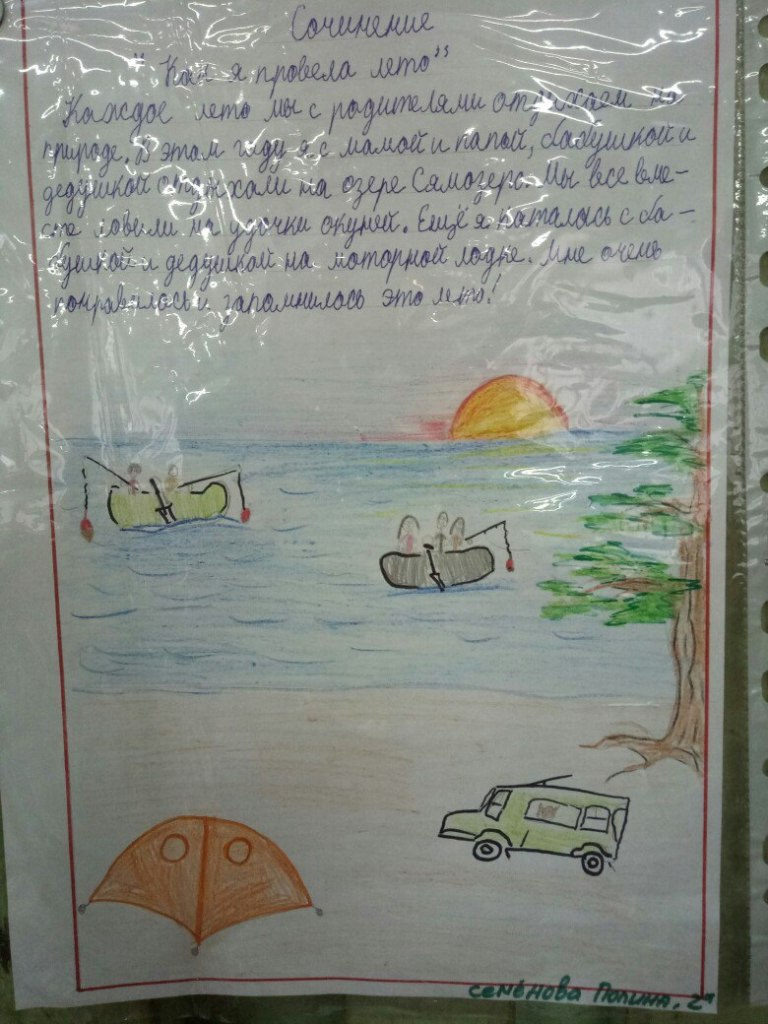 Сочинение
"Как я провела лето"
Каждое лето мы с родителями отдыхаем на
природе. В этом году я с мамой и папой, бабушкой и
дедушкой отдыхали на озере Сямозеро. Мы все вме-
сте ловили на удочки окуней. Ещё я каталась с ба-
бушкой и дедушкой на моторной лодке. Мне очень
понравилось и запомнилось это лето!
семёнова Полина. 2"